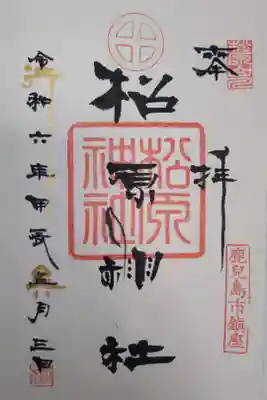 奉拝
鹿兒島市鎮座
松原神社
松原神社
令和六年甲辰